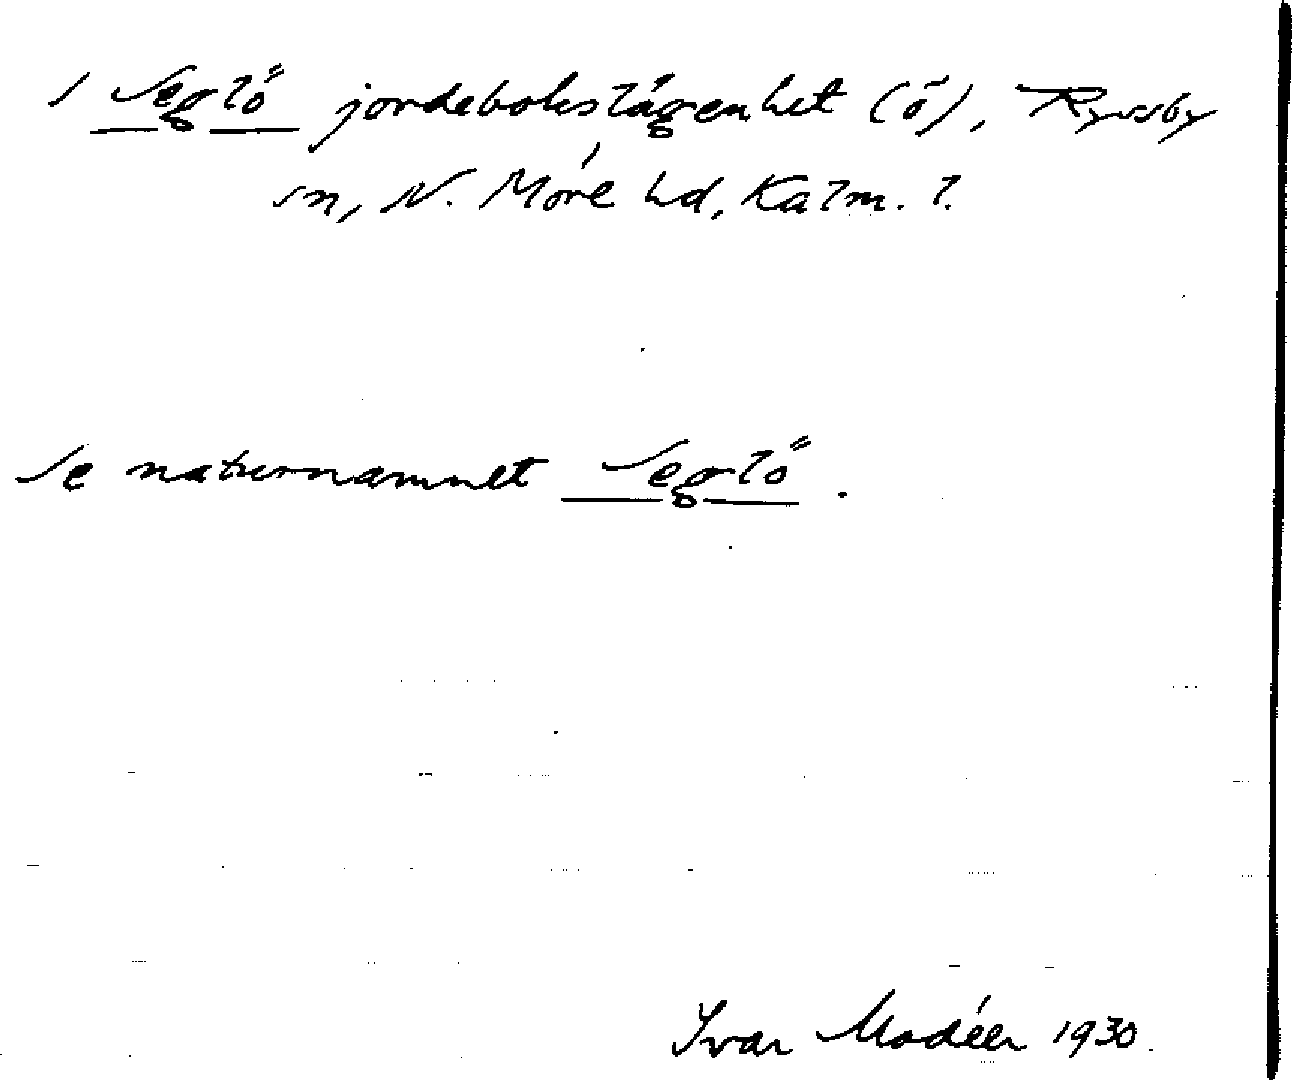 1 Seglö jordebokslägenhet (ö), Ryssby
sn, N. Möre hd, Kalm. l.
Se naturnamnet Seglö.
Ivar Modéer 1930.